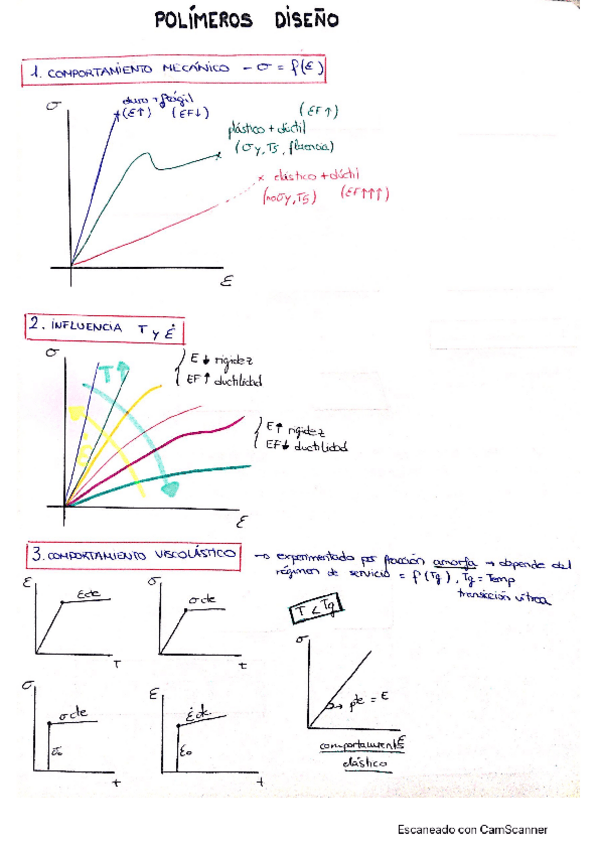 POLÍMEROS DISEÑO
1. COMPORTAMIENTO MECÁNICO - σ = f(ε)
σ
duro + frágil
(E↑) (EF↓)
(EF↑)
plástico + dúctil
(σy, TS, fluencia)
elástico + dúctil
(no σy, TS) (EF↑↑↑)
ε
2. INFLUENCIA T y ε̇
σ
T↑
E ↓ rigidez
EF ↑ ductilidad
E↑ rigidez
EF↓ ductilidad
ε
3. COMPORTAMIENTO VISCOLÁSTICO
→ experimentado por fracción amorfa → depende del
régimen de servicio = f(Tg), Tg = Temp
transición vítrea
ε
ε cte
T
σ
σ cte
t
T < Tg
σ
pte = E
ε
comportamiento
elástico
σ
σ cte
σ₀
t
ε
ε̇ cte
ε₀
t
Escaneado con CamScanner